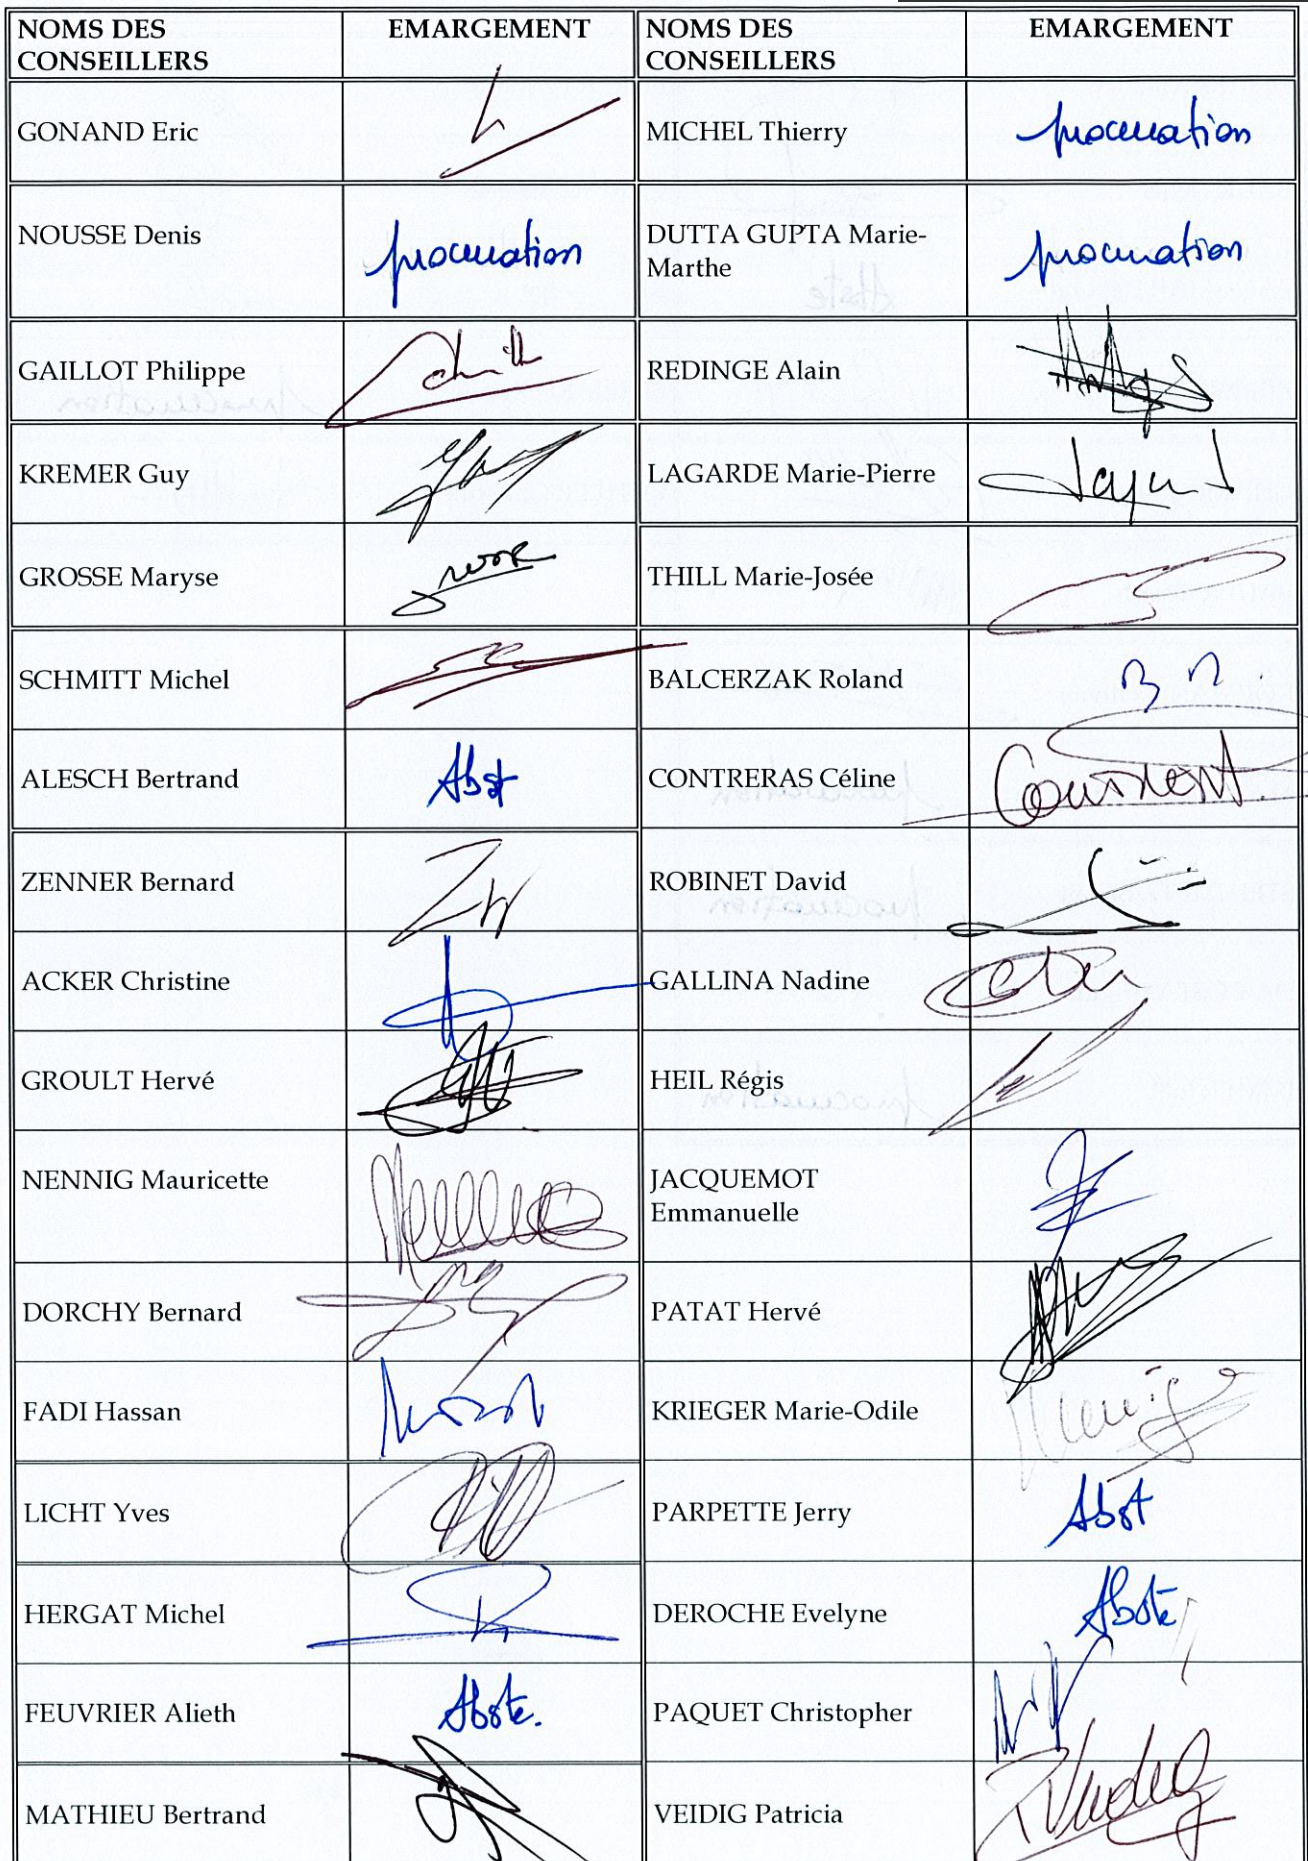 NOMS DES CONSEILLERS EMARGEMENT NOMS DES CONSEILLERS EMARGEMENT
GONAND Eric MICHEL Thierry procuration
NOUSSE Denis procuration DUTTA GUPTA Marie-Marthe procuration
GAILLOT Philippe REDINGE Alain
KREMER Guy LAGARDE Marie-Pierre
GROSSE Maryse THILL Marie-Josée
SCHMITT Michel BALCERZAK Roland
ALESCH Bertrand Abst CONTRERAS Céline
ZENNER Bernard ROBINET David
ACKER Christine GALLINA Nadine
GROULT Hervé HEIL Régis
NENNIG Mauricette JACQUEMOT Emmanuelle
DORCHY Bernard PATAT Hervé
FADI Hassan KRIEGER Marie-Odile
LICHT Yves PARPETTE Jerry Abst
HERGAT Michel DEROCHE Evelyne Abste
FEUVRIER Alieth Abste. PAQUET Christopher
MATHIEU Bertrand VEIDIG Patricia